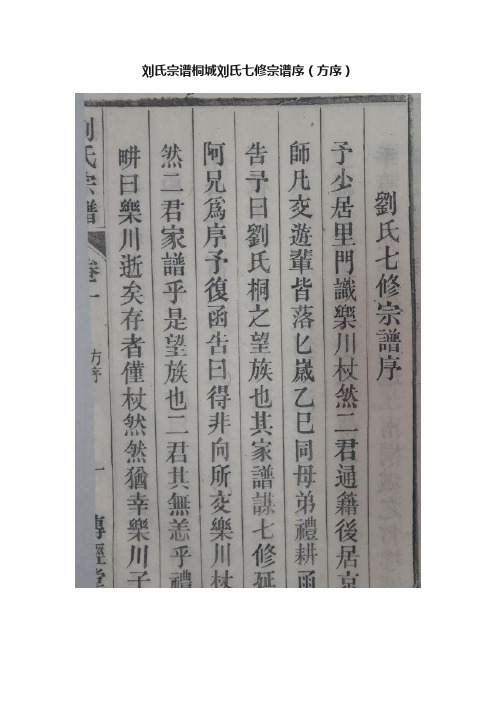 刘氏宗谱桐城刘氏七修宗谱序（方序）
劉氏七修宗譜序
予少居里門識樂川杖然二君通籍後居京
師凡交遊輩皆落匕嵗乙巳同母弟禮耕函
告予曰劉氏桐之望族也其家譜謀七修延
阿兄爲序予復函告曰得非向所交樂川杖
然二君家譜乎是望族也二君其無恙乎禮
畊曰樂川逝矣存者僅杖然然猶幸樂川子
劉氏宗譜 卷一 方序 一 傳經堂